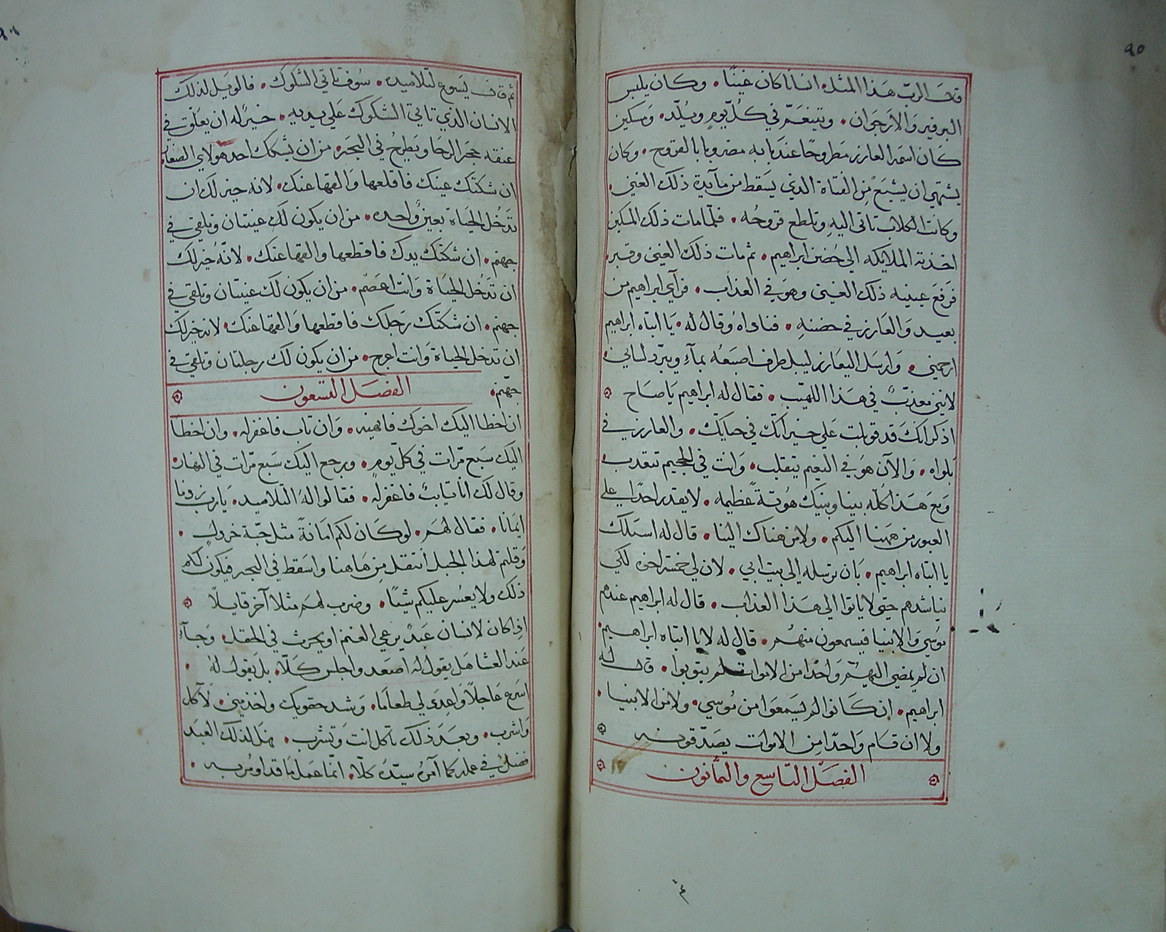 ٩٥
قال الرب هذا المثل انسانا كان غنيا • وكان يلبس
البرفير والارجوان • ويتنعم في كل يوم ويلذ • ومسكين
كان اسمه العازر مطروحا عند بابه مضروبا بالقروح • وكان
يشتهي ان يشبع من الفتات الذي يسقط من مايدة ذلك الغني
وكانت الكلاب تاتي اليه وتلطع قروحه • فلما مات ذلك المسكين
اخذته الملايكه الي حضن ابراهيم • ثم مات ذلك الغني وقبر
فرفع عينيه ذلك الغني وهو في العذاب • فراي ابراهيم من
بعيد والعازر في حضنه • فناداه وقال له • يا ابتاه ابراهيم
ارحمني • وارسل اليعازر ليبل طرف اصبعه بماء ويبرد لساني
لانني معذب في هذا اللهيب • فقال له ابراهيم يا صاح
اذكر انك قد قبلت علي خيراتك في حياتك • والعازر في
بلواه • والآن هو في النعيم يتقلب • وانت في الجحيم تتعذب
ومع هذا كله بيننا وبينك هوتة عظيمه • لا يقدر احدا علي
العبور من ههنا اليكم • ولا من هناك الينا • قال له اسئلك
يا ابتاه ابراهيم • بان ترسله الي بيت ابي • لان لي خمسة اخوه لكي
يناشدهم حتي لا ياتوا الي هذا العذاب • قال له ابراهيم عندهم
موسي والانبيا فيسمعون منهم • قال له لا يا ابتاه ابراهيم •
ان لم يمضي اليهم واحدا من الاموات لم يتوبوا • قال له
ابراهيم • ان كانوا لم يسمعوا من موسي • ولا من الانبيا •
ولا ان قام واحدا من الاموات يصدقونه
الفصل التاسع والثمانون
ثم قال يسوع لتلاميذه • سوف تاتي الشكوك • فالويل لذلك
الانسان الذي تاتي الشكوك علي يديه • خير له ان يعلق في
عنقه حجر الرحا ويطرح في البحر • من ان يشكك احد هولاي الصغار
ان شككتك عينك فاقلعها والقها عنك • لانه خير لك ان
تدخل الحياة بعين واحده • من ان يكون لك عينان وتلقي في
جهنم • ان شككتك يدك فاقطعها والقها عنك • لانه خير لك
ان تدخل الحياة وانت اعصم • من ان يكون لك عينان وتلقي في
جهنم • ان شككتك رجلك فاقطعها والقها عنك • لانه خير لك
ان تدخل الحياة وانت اعرج • من ان يكون لك رجلان وتلقي في
جهنم •
الفصل التسعون
ان اخطا اليك اخوك فانهيه • وان تاب فاغفر له • وان اخطا
اليك سبع مرات في كل يوم • ورجع اليك سبع مرات في النهار
وقال لك انا تايب فاغفر له • فقالوا له التلاميد • يارب زدنا
ايمانا • فقال لهم • لو كان لكم امانة مثل حبة خردل •
وقلتم لهذا الجبل انتقل من هاهنا واسقط في البحر فيكون لكم
ذلك ولا يعسر عليكم شيا • وضرب لهم مثلا آخر قايلا
اذا كان لانسان عبد يرعي الغنم او يحرث في الحقل • وجاء
عند العشا هل يقول له اصعد واجلس كلا • بل يقول له •
اسرع عاجلا واعد لي طعاما • وشد حقويك واخدمني • لآكل
واشرب • وبعد ذلك تاكل انت وتشرب • هل لذلك العبد
فضل في عمله كما امره سيده كلا • انما عمل ما قد امر به •